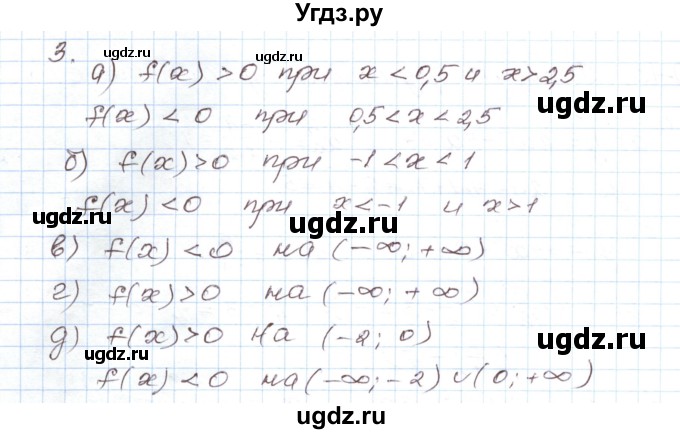 Угдз.ру
3.
а) f(x) > 0 при x < 0,5 и x > 2,5
f(x) < 0 при 0,5 < x < 2,5
б) f(x) > 0 при -1 < x < 1
f(x) < 0 при x < -1 и x > 1
в) f(x) < 0 на (-∞; +∞)
г) f(x) > 0 на (-∞; +∞)
д) f(x) > 0 на (-2; 0)
f(x) < 0 на (-∞; -2) ∪ (0; +∞)
ugdz.ru
ugdz.ru
ugdz.ru
ugdz.ru
ugdz.ru
ugdz.ru
ugdz.ru
ugdz.ru
ugdz.ru